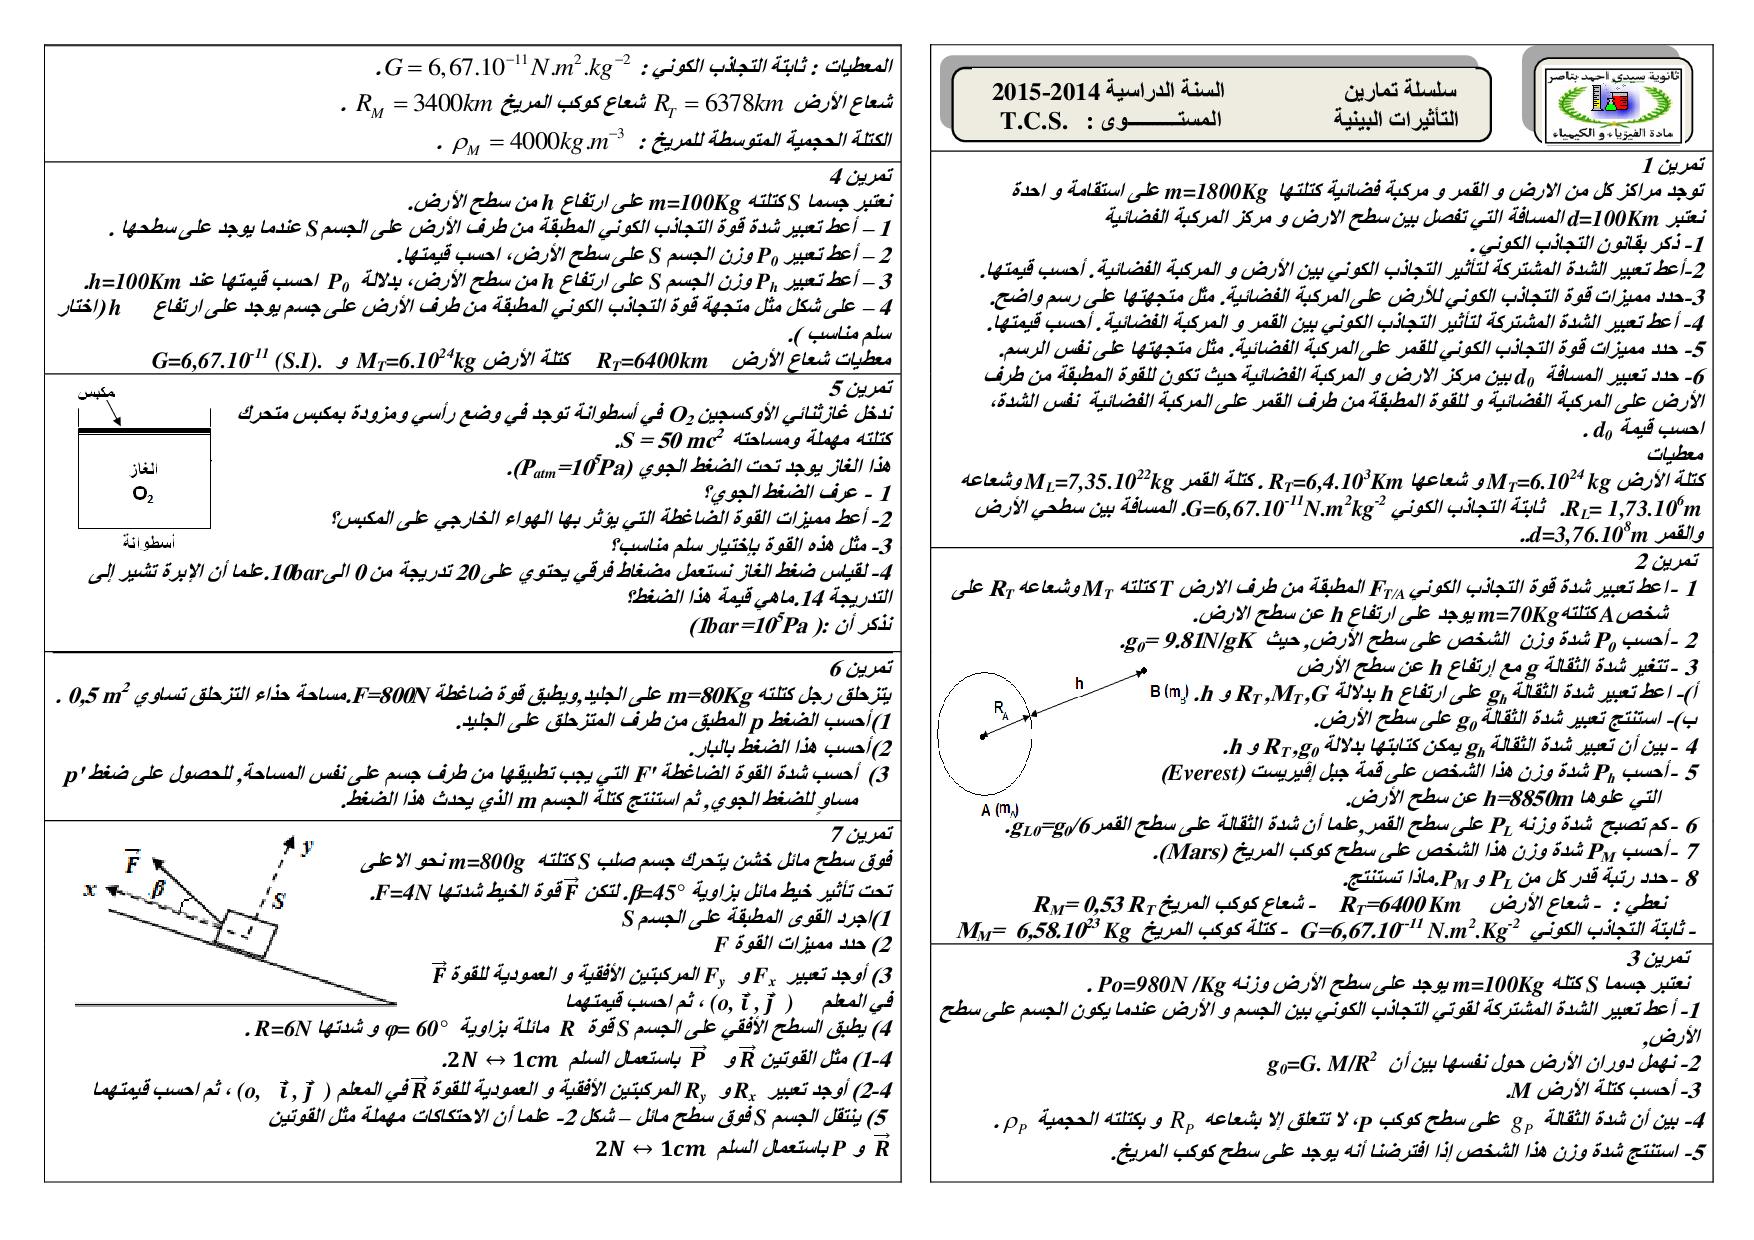 ثانوية سيدي احمد بناصر
مادة الفيزياء و الكيمياء
سلسلة تمارين السنة الدراسية 2014-2015
التأثيرات البينية المستــــــــــوى : T.C.S.
تمرين 1
توجد مراكز كل من الارض و القمر و مركبة فضائية كتلتها m=1800Kg على استقامة و احدة
نعتبر d=100Km المسافة التي تفصل بين سطح الارض و مركز المركبة الفضائية
1- ذكر بقانون التجاذب الكوني .
2-أعط تعبير الشدة المشتركة لتأثير التجاذب الكوني بين الأرض و المركبة الفضائية. أحسب قيمتها.
3-حدد مميزات قوة التجاذب الكوني للأرض على المركبة الفضائية. مثل متجهتها على رسم واضح.
4- أعط تعبير الشدة المشتركة لتأثير التجاذب الكوني بين القمر و المركبة الفضائية. أحسب قيمتها.
5- حدد مميزات قوة التجاذب الكوني للقمر على المركبة الفضائية. مثل متجهتها على نفس الرسم.
6- حدد تعبير المسافة d₀ بين مركز الارض و المركبة الفضائية حيث تكون للقوة المطبقة من طرف
الأرض على المركبة الفضائية و للقوة المطبقة من طرف القمر على المركبة الفضائية نفس الشدة،
احسب قيمة d₀ .
معطيات
كتلة الأرض M_T=6.10²⁴ kg و شعاعها R_T=6,4.10³Km . كتلة القمر M_L=7,35.10²²kg وشعاعه
R_L= 1,73.10⁶m. ثابتة التجاذب الكوني G=6,67.10⁻¹¹N.m²kg⁻². المسافة بين سطحي الأرض
والقمر d=3,76.10⁸m..
تمرين 2
1 - اعط تعبير شدة قوة التجاذب الكوني F_T/A المطبقة من طرف الارض T كتلته M_T وشعاعه R_T على
شخص A كتلته m=70Kg يوجد على ارتفاع h عن سطح الارض.
2 - أحسب P₀ شدة وزن الشخص على سطح الأرض, حيث g₀= 9.81N/gK.
3 - تتغير شدة الثقالة g مع إرتفاع h عن سطح الأرض
أ)- اعط تعبير شدة الثقالة g_h على ارتفاع h بدلالة R_T ,M_T ,G و h.
ب)- استنتج تعبير شدة الثقالة g₀ على سطح الأرض.
4 - بين أن تعبير شدة الثقالة g_h يمكن كتابتها بدلالة R_T ,g₀ و h.
5 - أحسب P_h شدة وزن هذا الشخص على قمة جبل إڤيريست (Everest)
التي علوها h=8850m عن سطح الأرض.
h
R_A
B (m_B)
A (m_A)
6 - كم تصبح شدة وزنه P_L على سطح القمر,علما أن شدة الثقالة على سطح القمر g_L0=g₀/6.
7 - أحسب P_M شدة وزن هذا الشخص على سطح كوكب المريخ (Mars).
8 - حدد رتبة قدر كل من P_L و P_M.ماذا تستنتج.
نعطي : - شعاع الأرض R_T=6400 Km - شعاع كوكب المريخ R_M= 0,53 R_T
- ثابتة التجاذب الكوني G=6,67.10⁻¹¹ N.m².Kg⁻² - كتلة كوكب المريخ M_M= 6,58.10²³ Kg
تمرين 3
نعتبر جسما S كتله m=100Kg يوجد على سطح الأرض وزنه Po=980N /Kg .
1- أعط تعبير الشدة المشتركة لقوتي التجاذب الكوني بين الجسم و الأرض عندما يكون الجسم على سطح
الأرض,
2- نهمل دوران الأرض حول نفسها بين أن g₀=G. M/R²
3- أحسب كتلة الأرض M.
4- بين أن شدة الثقالة g_P على سطح كوكب P، لا تتعلق إلا بشعاعه R_P و بكتلته الحجمية ρ_P .
5- استنتج شدة وزن هذا الشخص إذا افترضنا أنه يوجد على سطح كوكب المريخ.
المعطيات : ثابتة التجاذب الكوني : G = 6,67.10⁻¹¹ N.m².kg⁻² .
شعاع الأرض R_T = 6378km شعاع كوكب المريخ R_M = 3400km .
الكتلة الحجمية المتوسطة للمريخ : ρ_M = 4000kg.m⁻³ .
تمرين 4
نعتبر جسما S كتلته m=100Kg على ارتفاع h من سطح الأرض.
1 – أعط تعبير شدة قوة التجاذب الكوني المطبقة من طرف الأرض على الجسم S عندما يوجد على سطحها .
2 – أعط تعبير P₀ وزن الجسم S على سطح الأرض، احسب قيمتها.
3 – أعط تعبير P_h وزن الجسم S على ارتفاع h من سطح الأرض، بدلالة P₀ احسب قيمتها عند h=100Km.
4 – على شكل مثل متجهة قوة التجاذب الكوني المطبقة من طرف الأرض على جسم يوجد على ارتفاع h (اختار
سلم مناسب ).
معطيات شعاع الأرض R_T=6400km كتلة الأرض M_T=6.10²⁴kg و G=6,67.10⁻¹¹ (S.I).
تمرين 5
ندخل غازثنائي الأوكسجين O₂ في أسطوانة توجد في وضع رأسي ومزودة بمكبس متحرك
كتلته مهملة ومساحته S = 50 mc².
هذا الغاز يوجد تحت الضغط الجوي (P_atm=10⁵Pa).
1 - عرف الضغط الجوي؟
2- أعط مميزات القوة الضاغطة التي يؤثر بها الهواء الخارجي على المكبس؟
3- مثل هذه القوة بإختيار سلم مناسب؟
مكبس
الغاز
O₂
أسطوانة
4- لقياس ضغط الغاز نستعمل مضغاط فرقي يحتوي على 20 تدريجة من 0 الى 10bar.علما أن الإبرة تشير إلى
التدريجة 14.ماهي قيمة هذا الضغط؟
نذكر أن :( 1bar=10⁵Pa)
تمرين 6
يتزحلق رجل كتلته m=80Kg على الجليد,ويطبق قوة ضاغطة F=800N.مساحة حذاء التزحلق تساوي 0,5 m² .
1)أحسب الضغط p المطبق من طرف المتزحلق على الجليد.
2)أحسب هذا الضغط بالبار.
3) أحسب شدة القوة الضاغطة 'F التي يجب تطبيقها من طرف جسم على نفس المساحة, للحصول على ضغط 'p
مساوٍ للضغط الجوي, ثم استنتج كتلة الجسم m الذي يحدث هذا الضغط.
تمرين 7
فوق سطح مائل خشن يتحرك جسم صلب S كتلته m=800g نحو الاعلى
تحت تأثير خيط مائل بزاوية β=45°. لتكن F⃗ قوة الخيط شدتها F=4N.
1)اجرد القوى المطبقة على الجسم S
2) حدد مميزات القوة F
3) أوجد تعبير F_x و F_y المركبتين الأفقية و العمودية للقوة F⃗
في المعلم (o, i⃗ , j⃗ ) ، ثم احسب قيمتهما
F⃗
β
x
y
S
4) يطبق السطح الأفقي على الجسم S قوة R مائلة بزاوية φ= 60° و شدتها R=6N .
4-1) مثل القوتين R⃗ و P⃗ باستعمال السلم 2N ↔ 1cm.
4-2) أوجد تعبير R_x و R_y المركبتين الأفقية و العمودية للقوة R⃗ في المعلم (o, i⃗ , j⃗ ) ، ثم احسب قيمتهما
5) ينتقل الجسم S فوق سطح مائل – شكل 2- علما أن الاحتكاكات مهملة مثل القوتين
R⃗ و P باستعمال السلم 2N ↔ 1cm